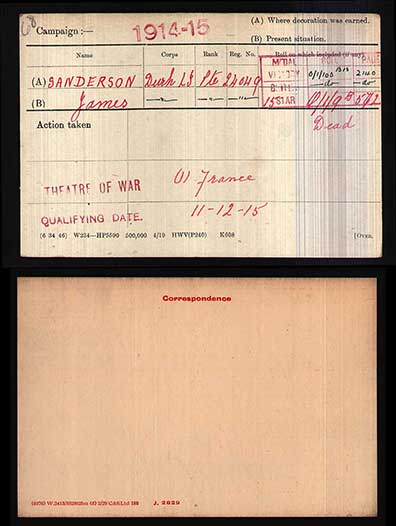 68
(A) Where decoration was earned.
Campaign :— 1914-15
(B) Present situation.
Name Corps Rank Reg. No. Roll on which included (if any)
MEDAL ROLL PAGE
(A) SANDERSON Durh LI Pte 24049 VICTORY 0/1/100 B13 2140
(B) James —"— —"— —"— —do— —do—
15 STAR
Action taken Dead
THEATRE OF WAR (1) France
QUALIFYING DATE. 11-12-15
(6 34 46) W234—HP5590 500,000 4/19 HWV(P240) K608 [OVER.
Correspondence
J. 2629